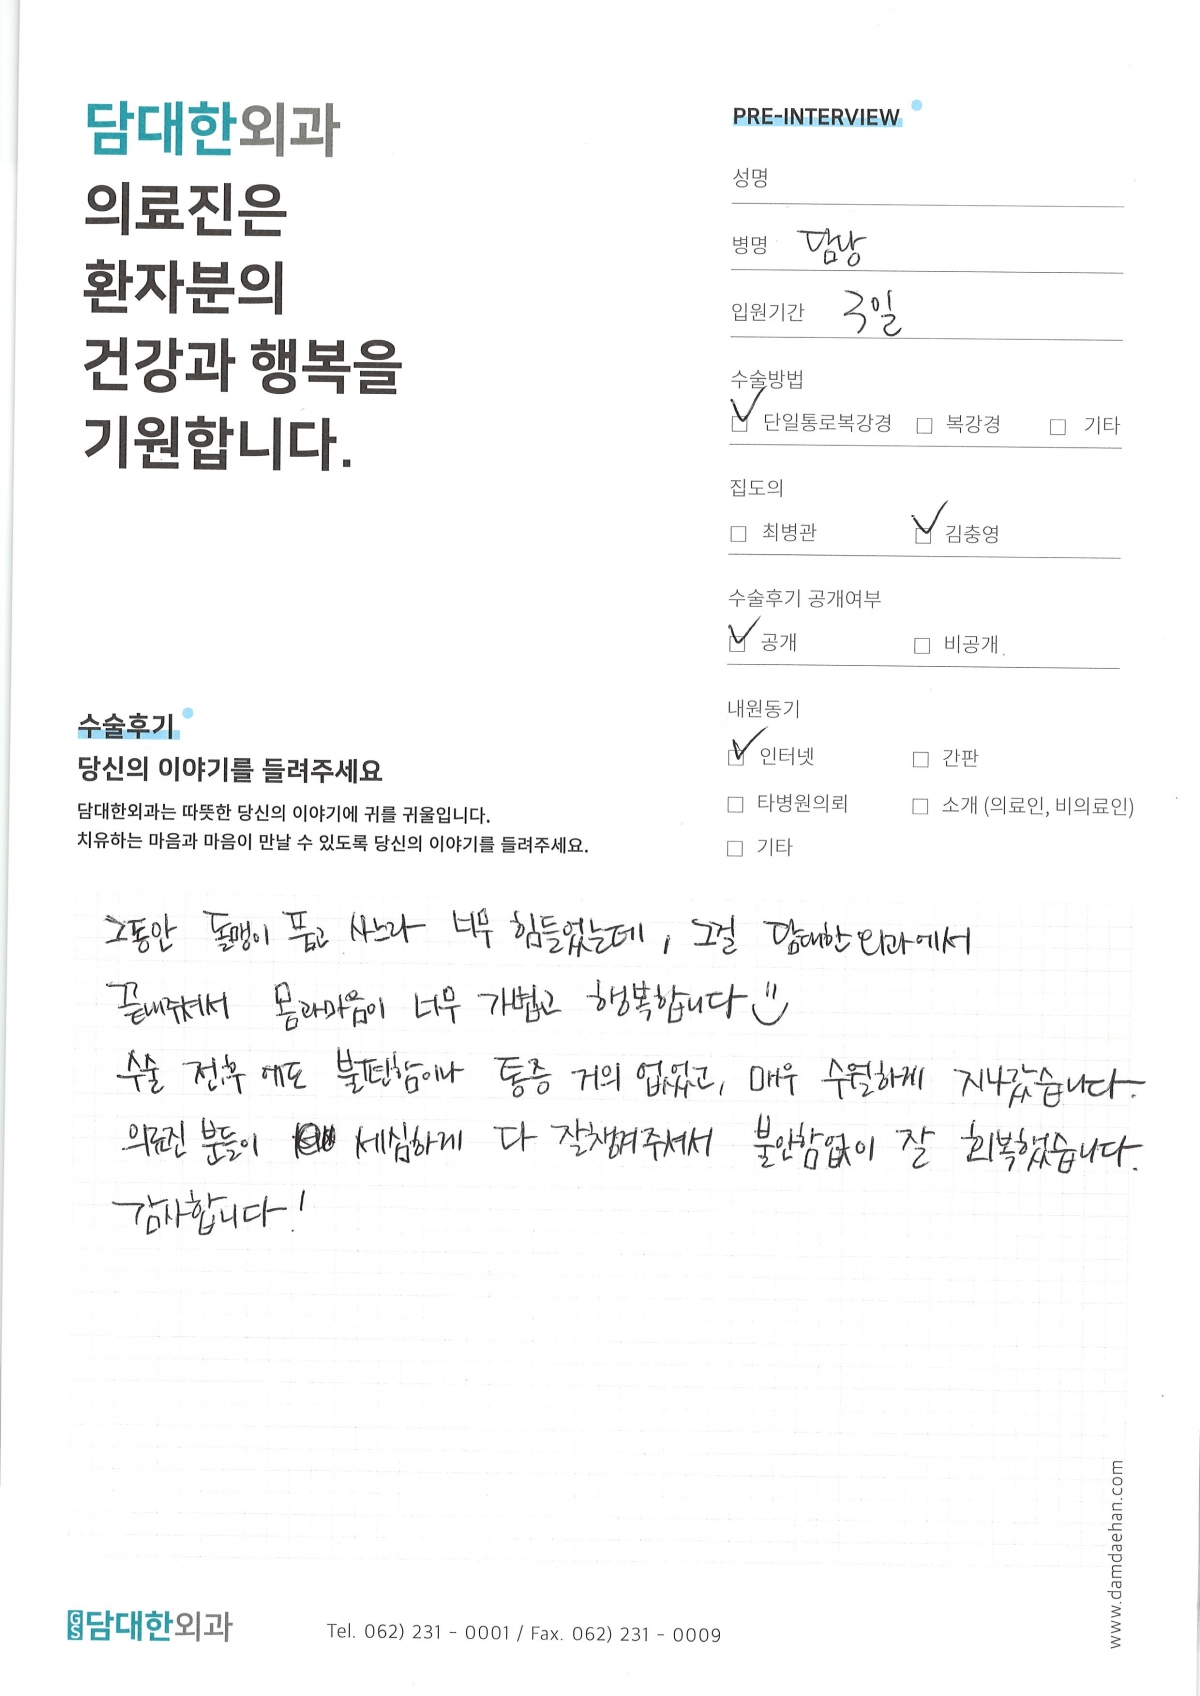 담대한외과
의료진은
환자분의
건강과 행복을
기원합니다.
PRE-INTERVIEW
성명
병명 담낭
입원기간 3일
수술방법
단일통로복강경 복강경 기타
집도의
최병관 김충영
수술후기 공개여부
공개 비공개
내원동기
인터넷 간판
타병원의뢰 소개 (의료인, 비의료인)
기타
수술후기
당신의 이야기를 들려주세요
담대한외과는 따뜻한 당신의 이야기에 귀를 귀울입니다.
치유하는 마음과 마음이 만날 수 있도록 당신의 이야기를 들려주세요.
그동안 돌맹이 품고 사느라 너무 힘들었는데, 그걸 담대한외과에서
끝내주셔서 몸과마음이 너무 가볍고 행복합니다
수술 전,후에도 불편함이나 통증 거의 없었고, 매우 수월하게 지나갔습니다.
의료진 분들이 세심하게 다 잘챙겨주셔서 불안함없이 잘 회복했습니다.
감사합니다!
www.damdaehan.com
GS 담대한외과
Tel. 062) 231 - 0001 / Fax. 062) 231 - 0009